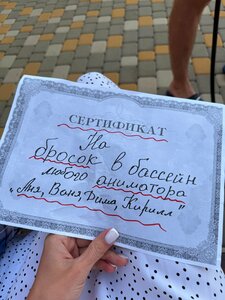 СЕРТИФИКАТ
На
бросок в бассейн
любого аниматора
„Аня, Ваня, Дима, Кирилл"